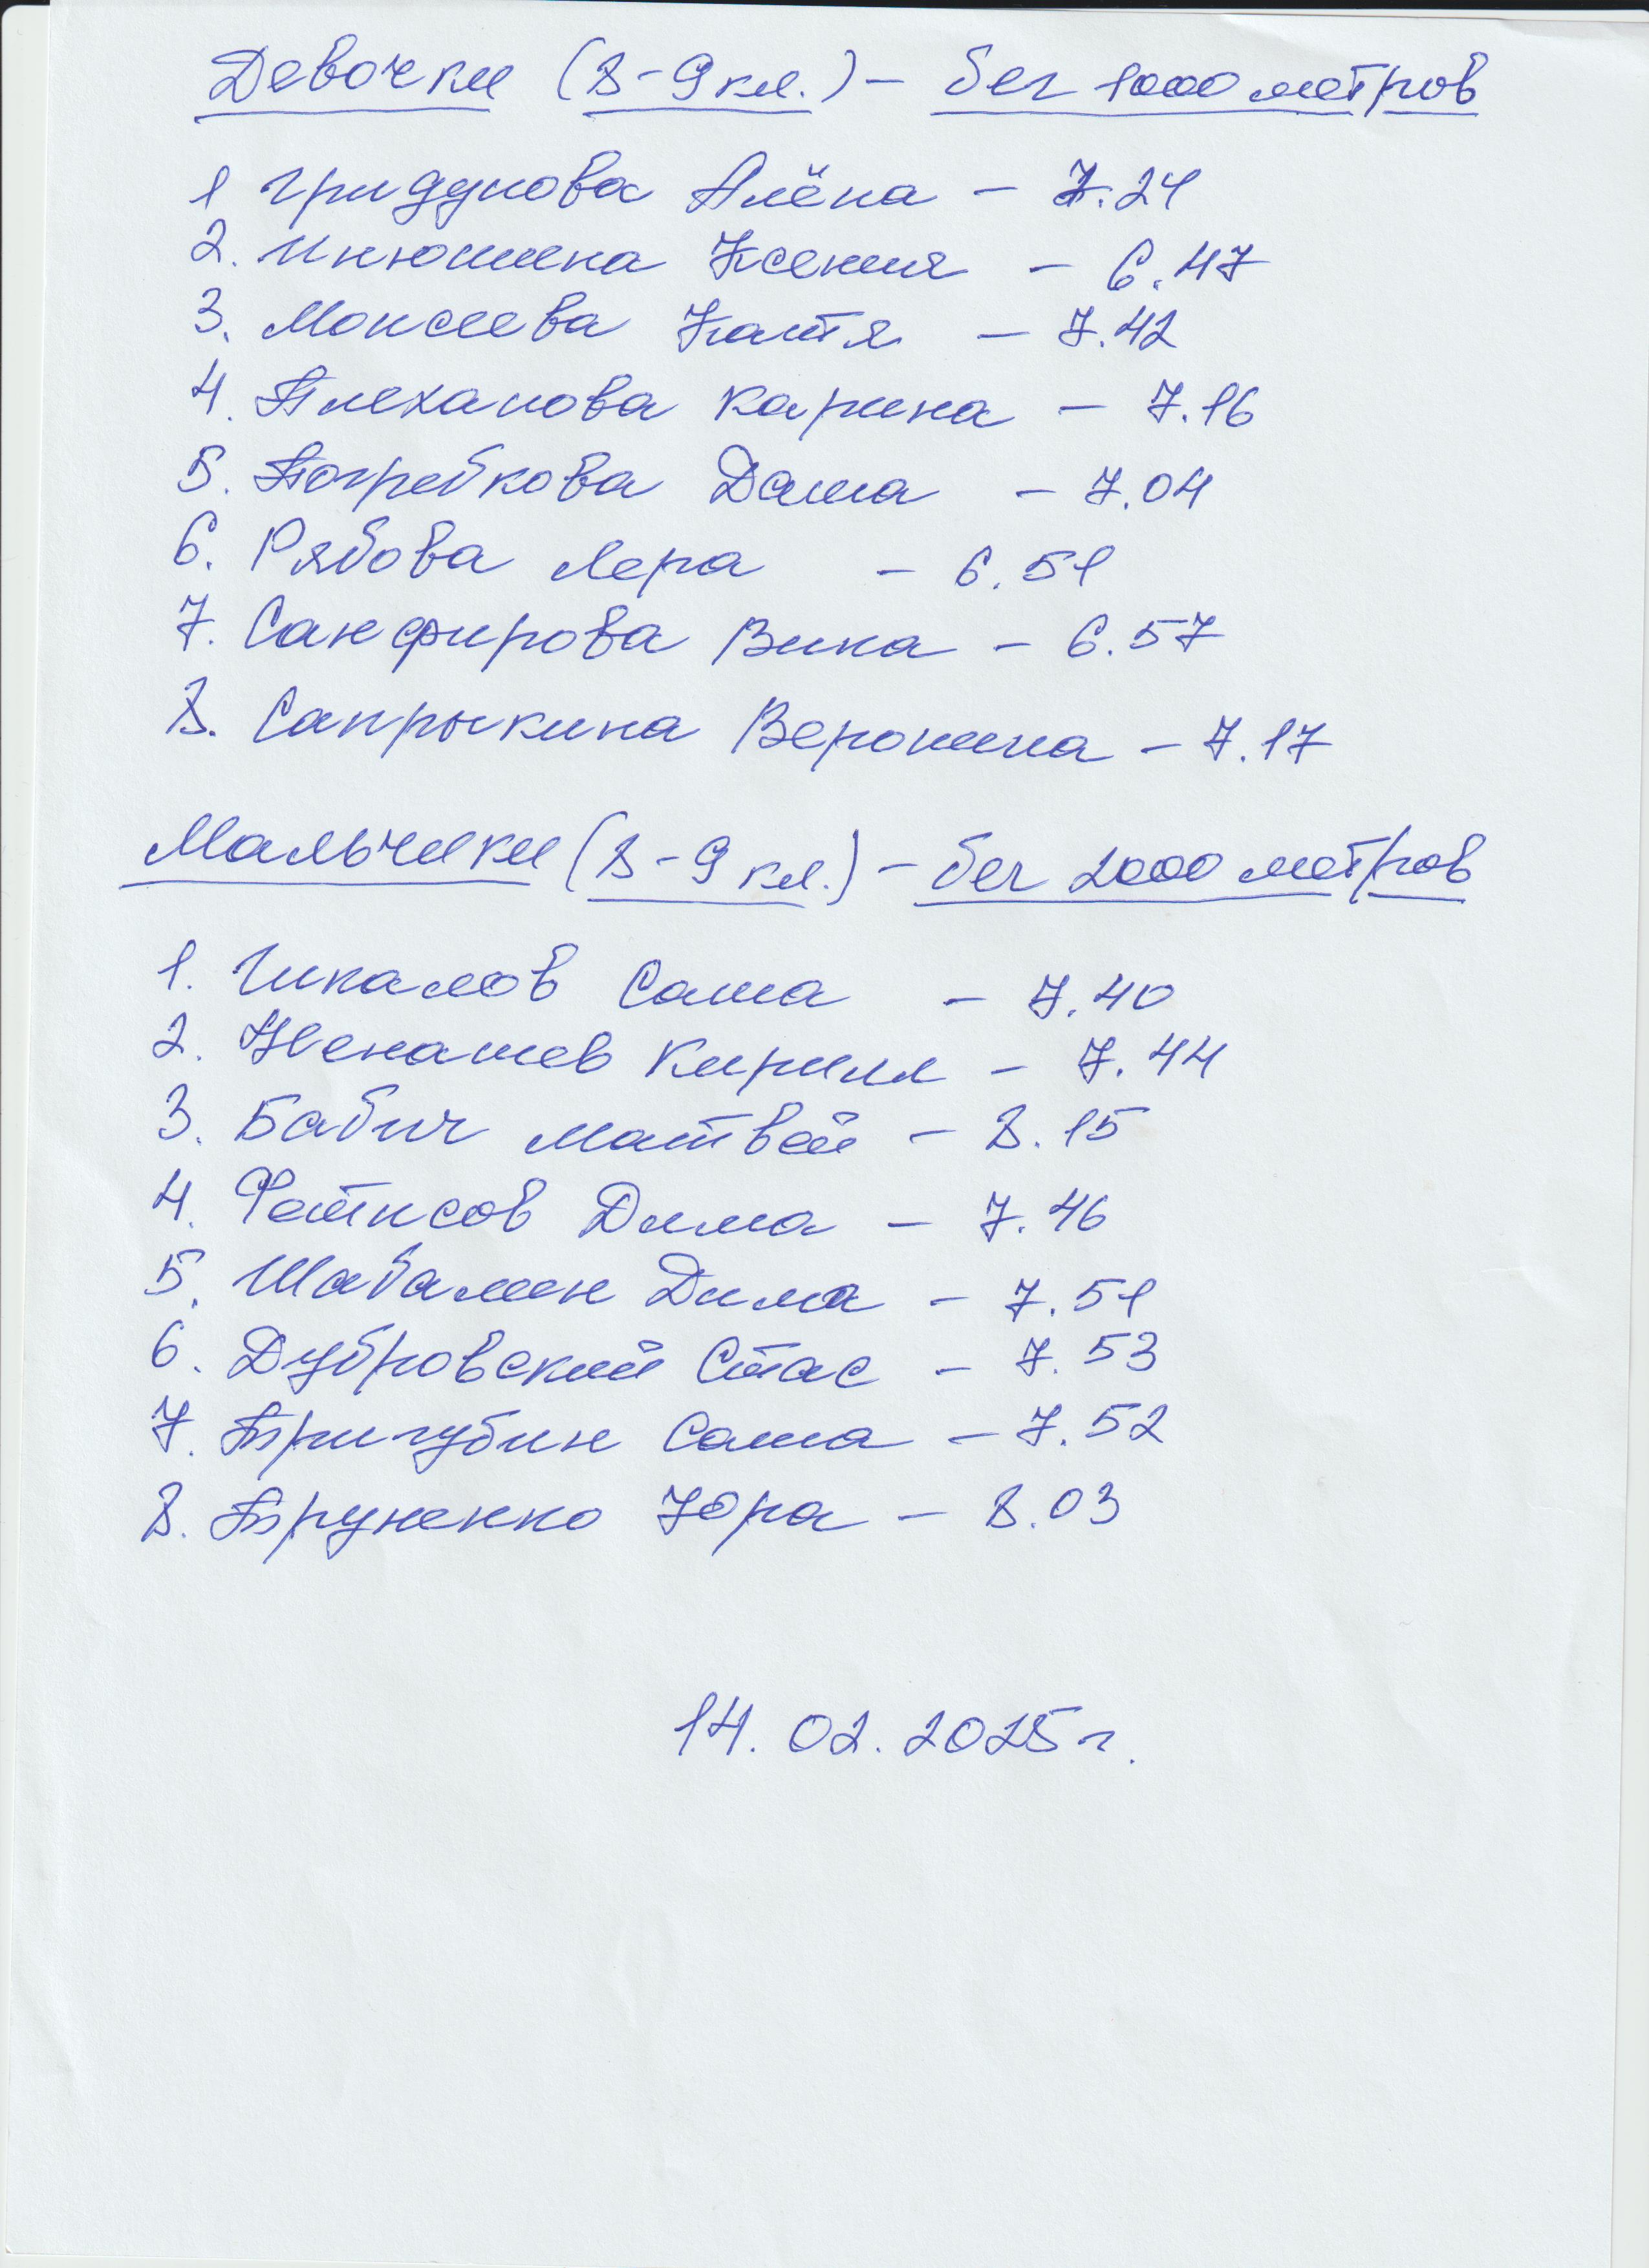 Девочки (8-9 кл.) - бег 1000 метров
1 Гридунова Алёна - 7.24
2. Инюшина Ксения - 6.47
3. Моисеева Катя - 7.42
4. Плеханова Карина - 7.16
5. Погребкова Даша - 7.04
6. Рябова Лера - 6.51
7. Санфирова Вика - 6.57
8. Сапрыкина Вероника - 7.17
Мальчики (8-9 кл.) - бег 2000 метров
1. Чикалов Саша - 7.40
2. Ненашев Кирилл - 7.44
3. Бабич Матвей - 8.15
4. Фетисов Дима - 7.46
5. Шабалин Дима - 7.51
6. Дубровский Стас - 7.53
7. Пригубин Саша - 7.52
8. Пруненко Юра - 8.03
14.02.2025 г.